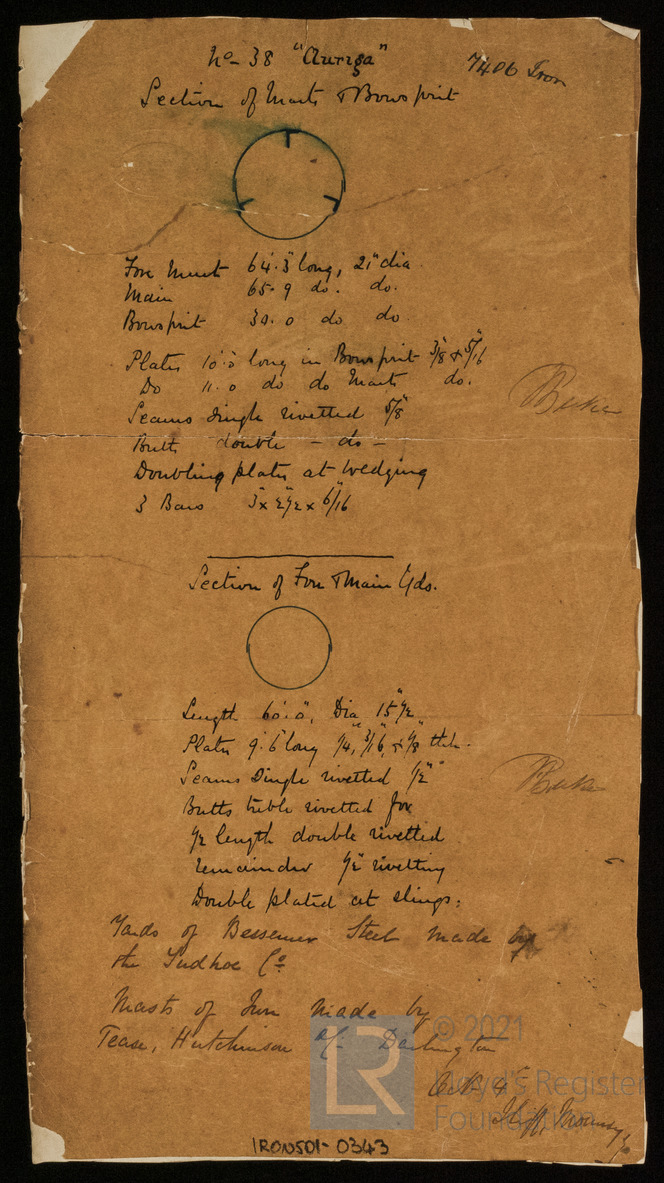 No 38 "Auriga"
7406 Iron
Section of Masts & Bowsprit
Fore Mast 64.3" long, 21" dia.
Main 65.9 do. do.
Bowsprit 30.0 do do
Plates 10'.0" long in Bowsprit 3/8" & 5/16"
Do 11.0 do do Masts do.
Seams single rivetted 5/8"
Butts double - do -
Doubling plates at wedging
3 Bars 3" x 2 1/2" x 6/16"
Section of Fore & Main Yds.
Length 60'.0", Dia 15" 1/2
Plates 9'.6" long 1/4", 3/16", & 1/8" thk.
Seams Single rivetted 1/2"
Butts treble rivetted for
1/2 length double rivetted
remainder 1/2" rivetting
Double plated at slings:
Yards of Bessemer Steel made by
the Tudhoe Co.
Masts of Iron made by
Pease, Hutchinson & Co. Darlington
Oct. 4th
© 2021
LR
Lloyd's Register
Foundation
IRON501-0343